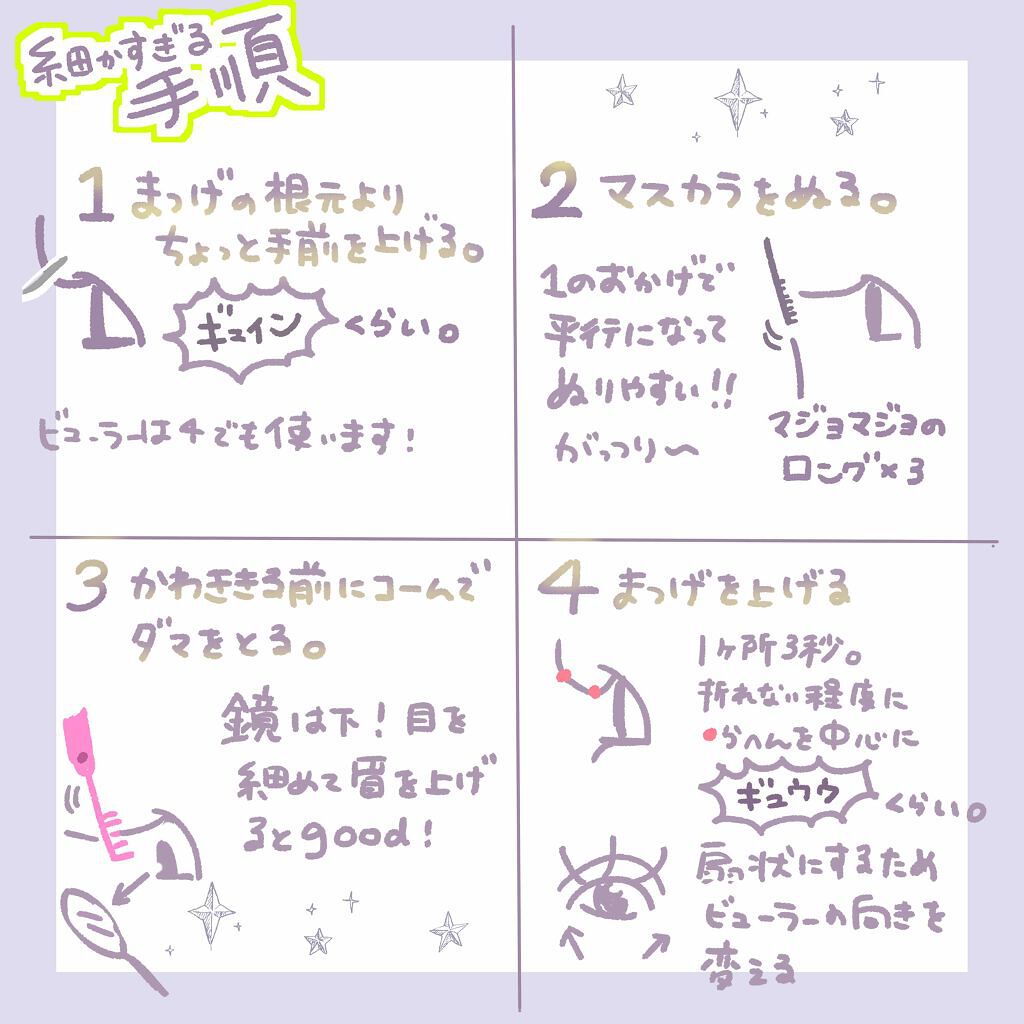 細かすぎる
手順
1 まつげの根元より
ちょっと手前を上げる。
ギュイン くらい。
ビューラーは4でも使います!
2 マスカラをぬる。
1のおかげで
平行になって
ぬりやすい!!
がっつり〜
マジョマジョの
ロング×3
3 かわききる前にコームで
ダマをとる。
鏡は下!目を
細めて眉を上げ
るとgood!
4 まつげを上げる
1ヶ所3秒。
折れない程度に
●らへんを中心に
ギュウウ くらい。
扇状にするため
ビューラーの向きを
変える